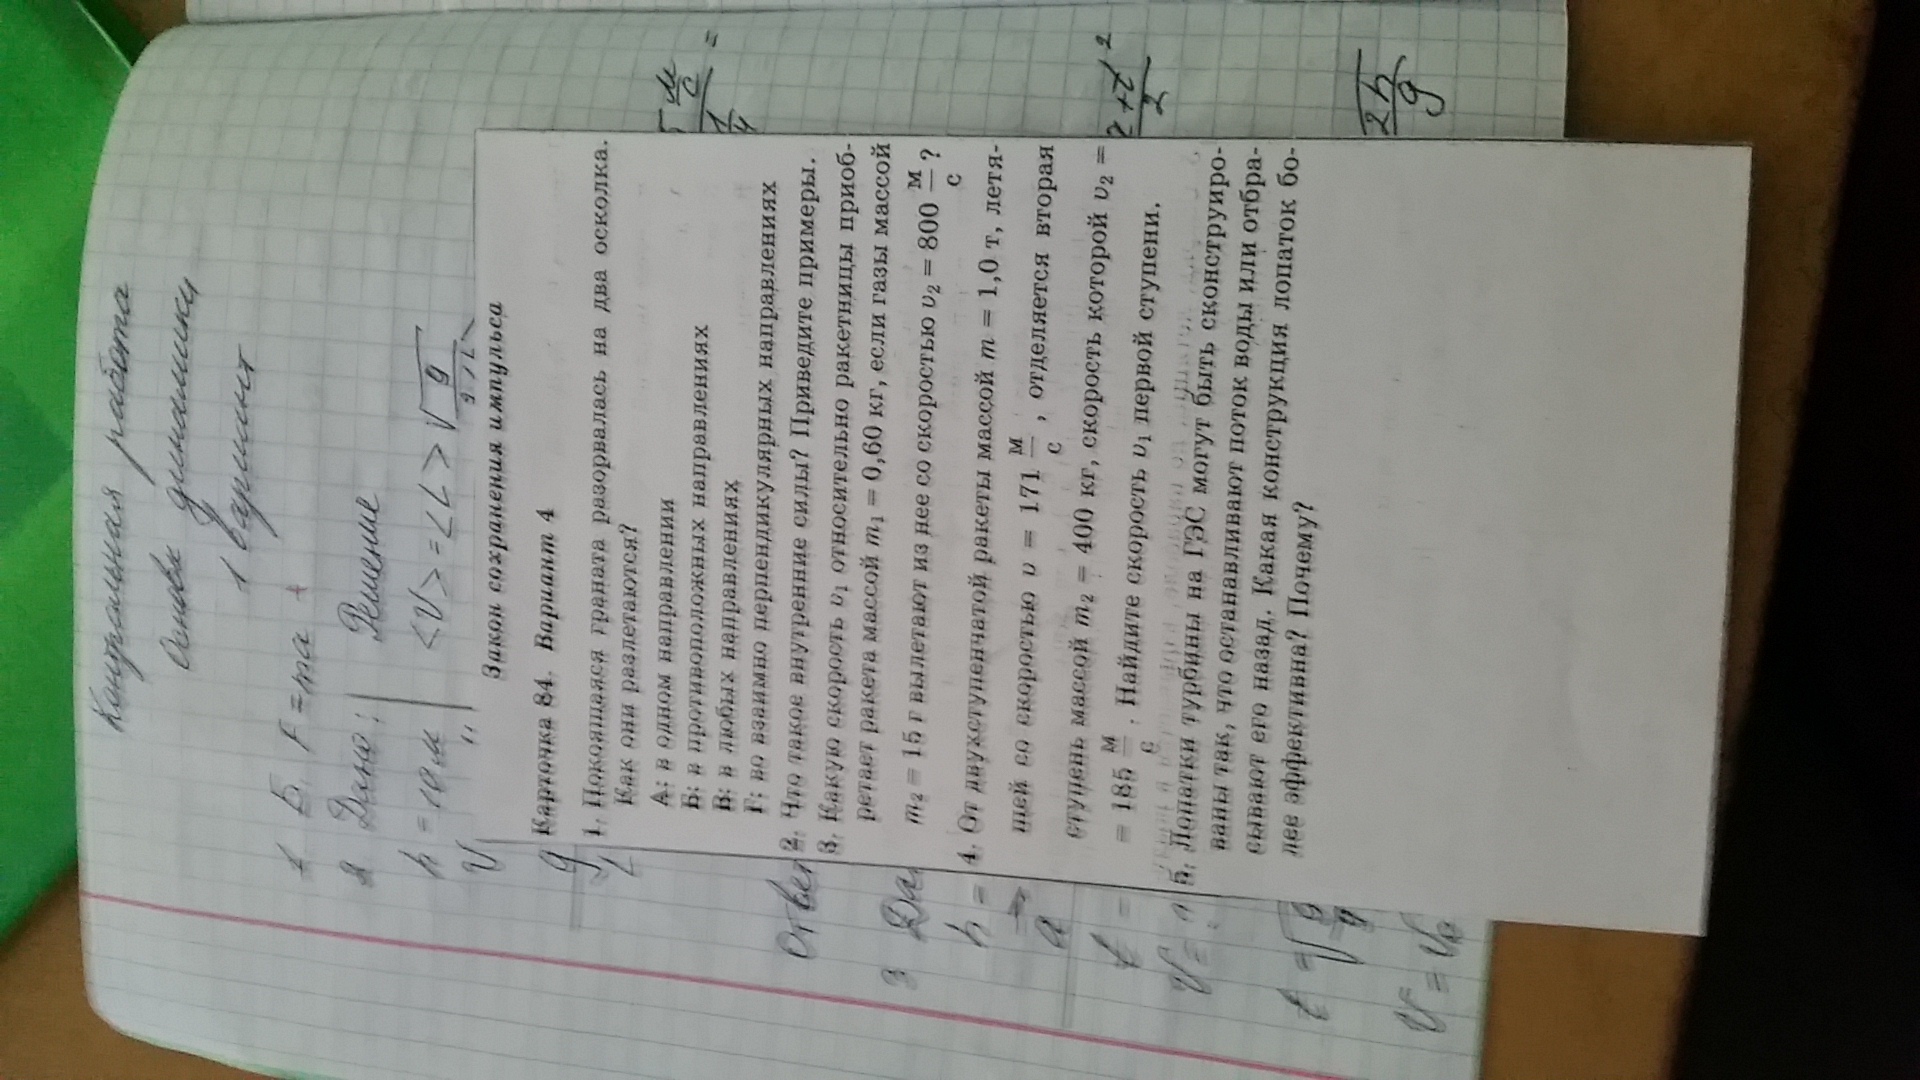 Контрольная работа
Основы динамики
1 вариант
1 Б. F = ma +
2 Дано: Решение
h = 10 м
Закон сохранения импульса
Карточка 84. Вариант 4
1. Покоящаяся граната разорвалась на два осколка.
Как они разлетаются?
А: в одном направлении
Б: в противоположных направлениях
В: в любых направлениях
Г: во взаимно перпендикулярных направлениях
2. Что такое внутренние силы? Приведите примеры.
3. Какую скорость v₁ относительно ракетницы приоб-
ретает ракета массой m₁ = 0,60 кг, если газы массой
m₂ = 15 г вылетают из нее со скоростью v₂ = 800 м/с ?
4. От двухступенчатой ракеты массой m = 1,0 т, летя-
щей со скоростью v = 171 м/с , отделяется вторая
ступень массой m₂ = 400 кг, скорость которой v₂ =
= 185 м/с . Найдите скорость v₁ первой ступени.
5. Лопатки турбины на ГЭС могут быть сконструиро-
ваны так, что останавливают поток воды или отбра-
сывают его назад. Какая конструкция лопаток бо-
лее эффективна? Почему?